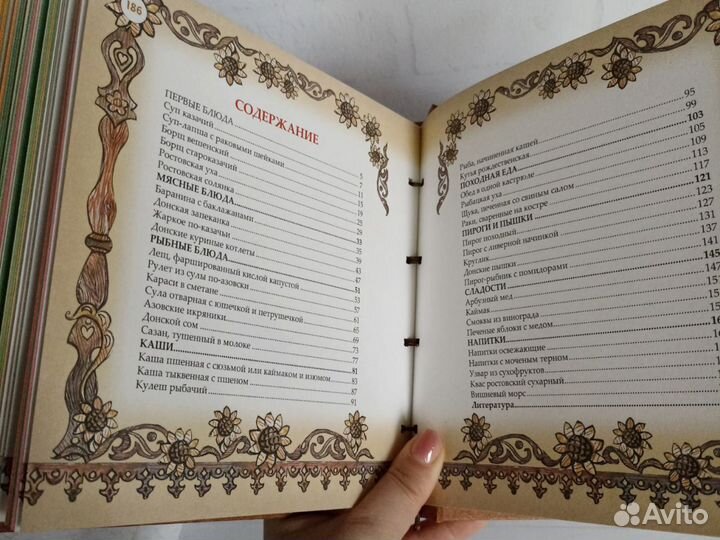 186
СОДЕРЖАНИЕ
ПЕРВЫЕ БЛЮДА 5
Суп казачий 7
Суп-лапша с раковыми шейками 11
Борщ вешенский 15
Борщ староказачий 19
Ростовская уха
Ростовская солянка
МЯСНЫЕ БЛЮДА 33
Баранина с баклажанами 35
Донская запеканка 39
Жаркое по-казачьи 43
Донские куриные котлеты 47
РЫБНЫЕ БЛЮДА 51
Лещ, фаршированный кислой капустой 53
Рулет из сулы по-азовски 57
Караси в сметане 61
Сула отварная с юшечкой и петрушечкой 65
Азовские икряники 69
Донской сом 73
Сазан, тушенный в молоке 77
КАШИ 81
Каша пшенная с сюзьмой или каймаком и изюмом 83
Каша тыквенная с пшеном 87
Кулеш рыбачий 91
Рыба, начиненная кашей 95
Кутья рождественская 99
ПОХОДНАЯ ЕДА 103
Обед в одной кастрюле 105
Рыбацкая уха 109
Щука, печенная со свиным салом 113
Раки, сваренные на костре 117
ПИРОГИ И ПЫШКИ 121
Пирог походный 123
Пирог с ливерной начинкой 127
Круглик 131
Донские пышки 137
Пирог-рыбник с помидорами 141
СЛАДОСТИ 145
Арбузный мед
Каймак
Смоквы из винограда
Печеные яблоки с медом
НАПИТКИ
Напитки освежающие
Напитки с моченым терном
Узвар из сухофруктов
Квас ростовский сухарный
Вишневый морс
Литература
Avito